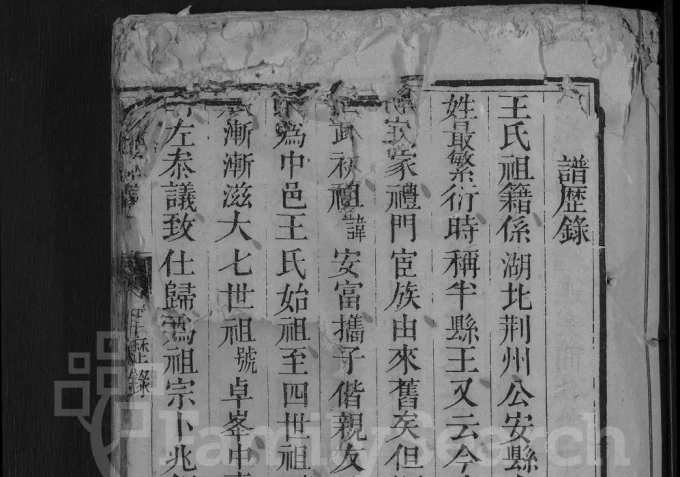 譜歴錄
王氏祖籍係湖北荆州公安縣
姓最繁衍時稱半縣王又云今
家禮門宦族由來舊矣但
武 祖諱安富攜子偕親友
為中邑王氏始祖至四世祖
漸漸滋大七世祖號卓峯中
左叅議致仕歸為祖宗卜兆
歷錄
FamilySearch